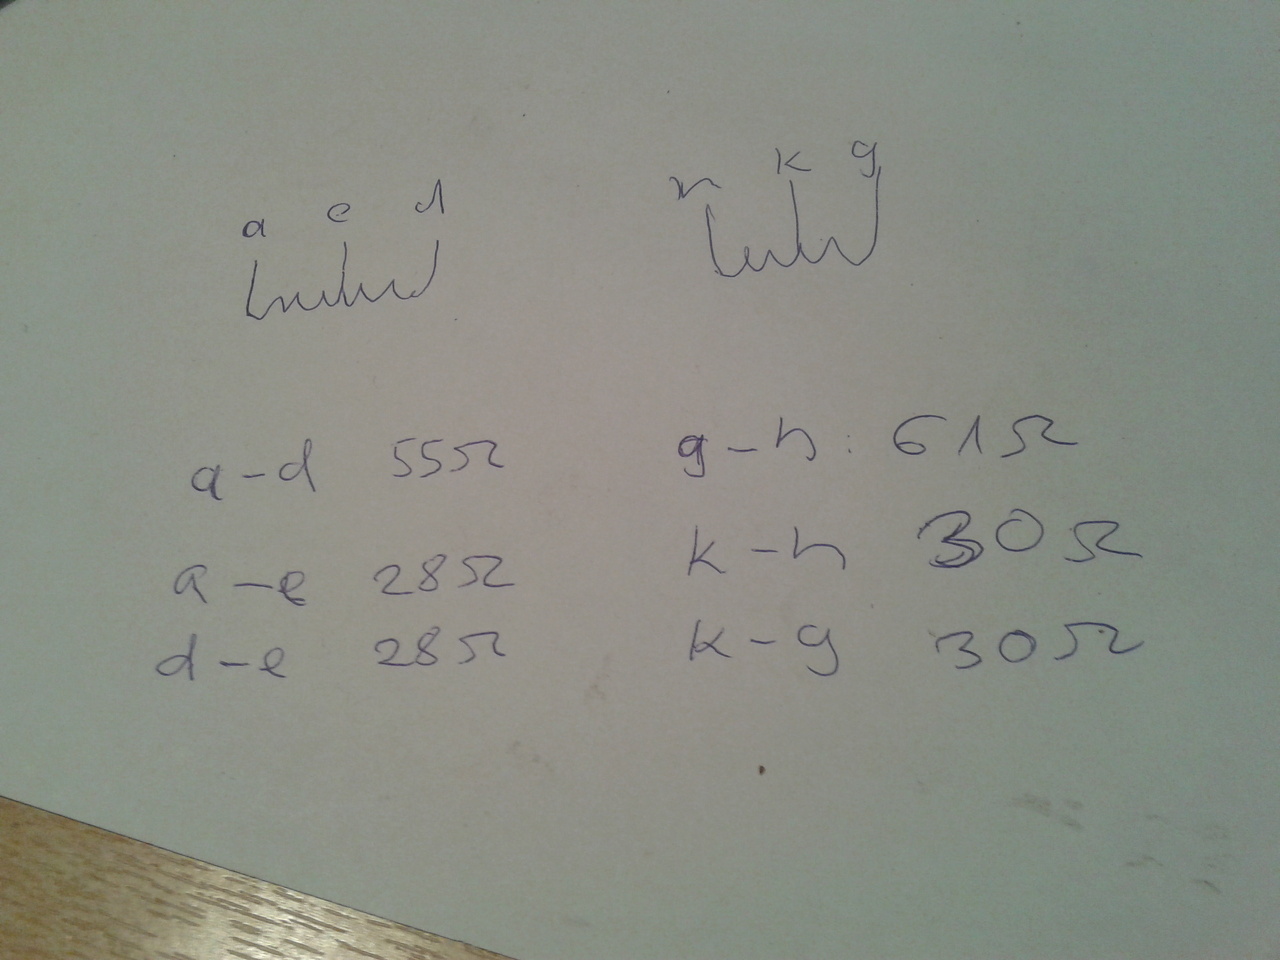 a e d
n k g
a-d 55Ω
a-e 28Ω
d-e 28Ω
g-h: 61Ω
k-h 30Ω
k-g 30Ω